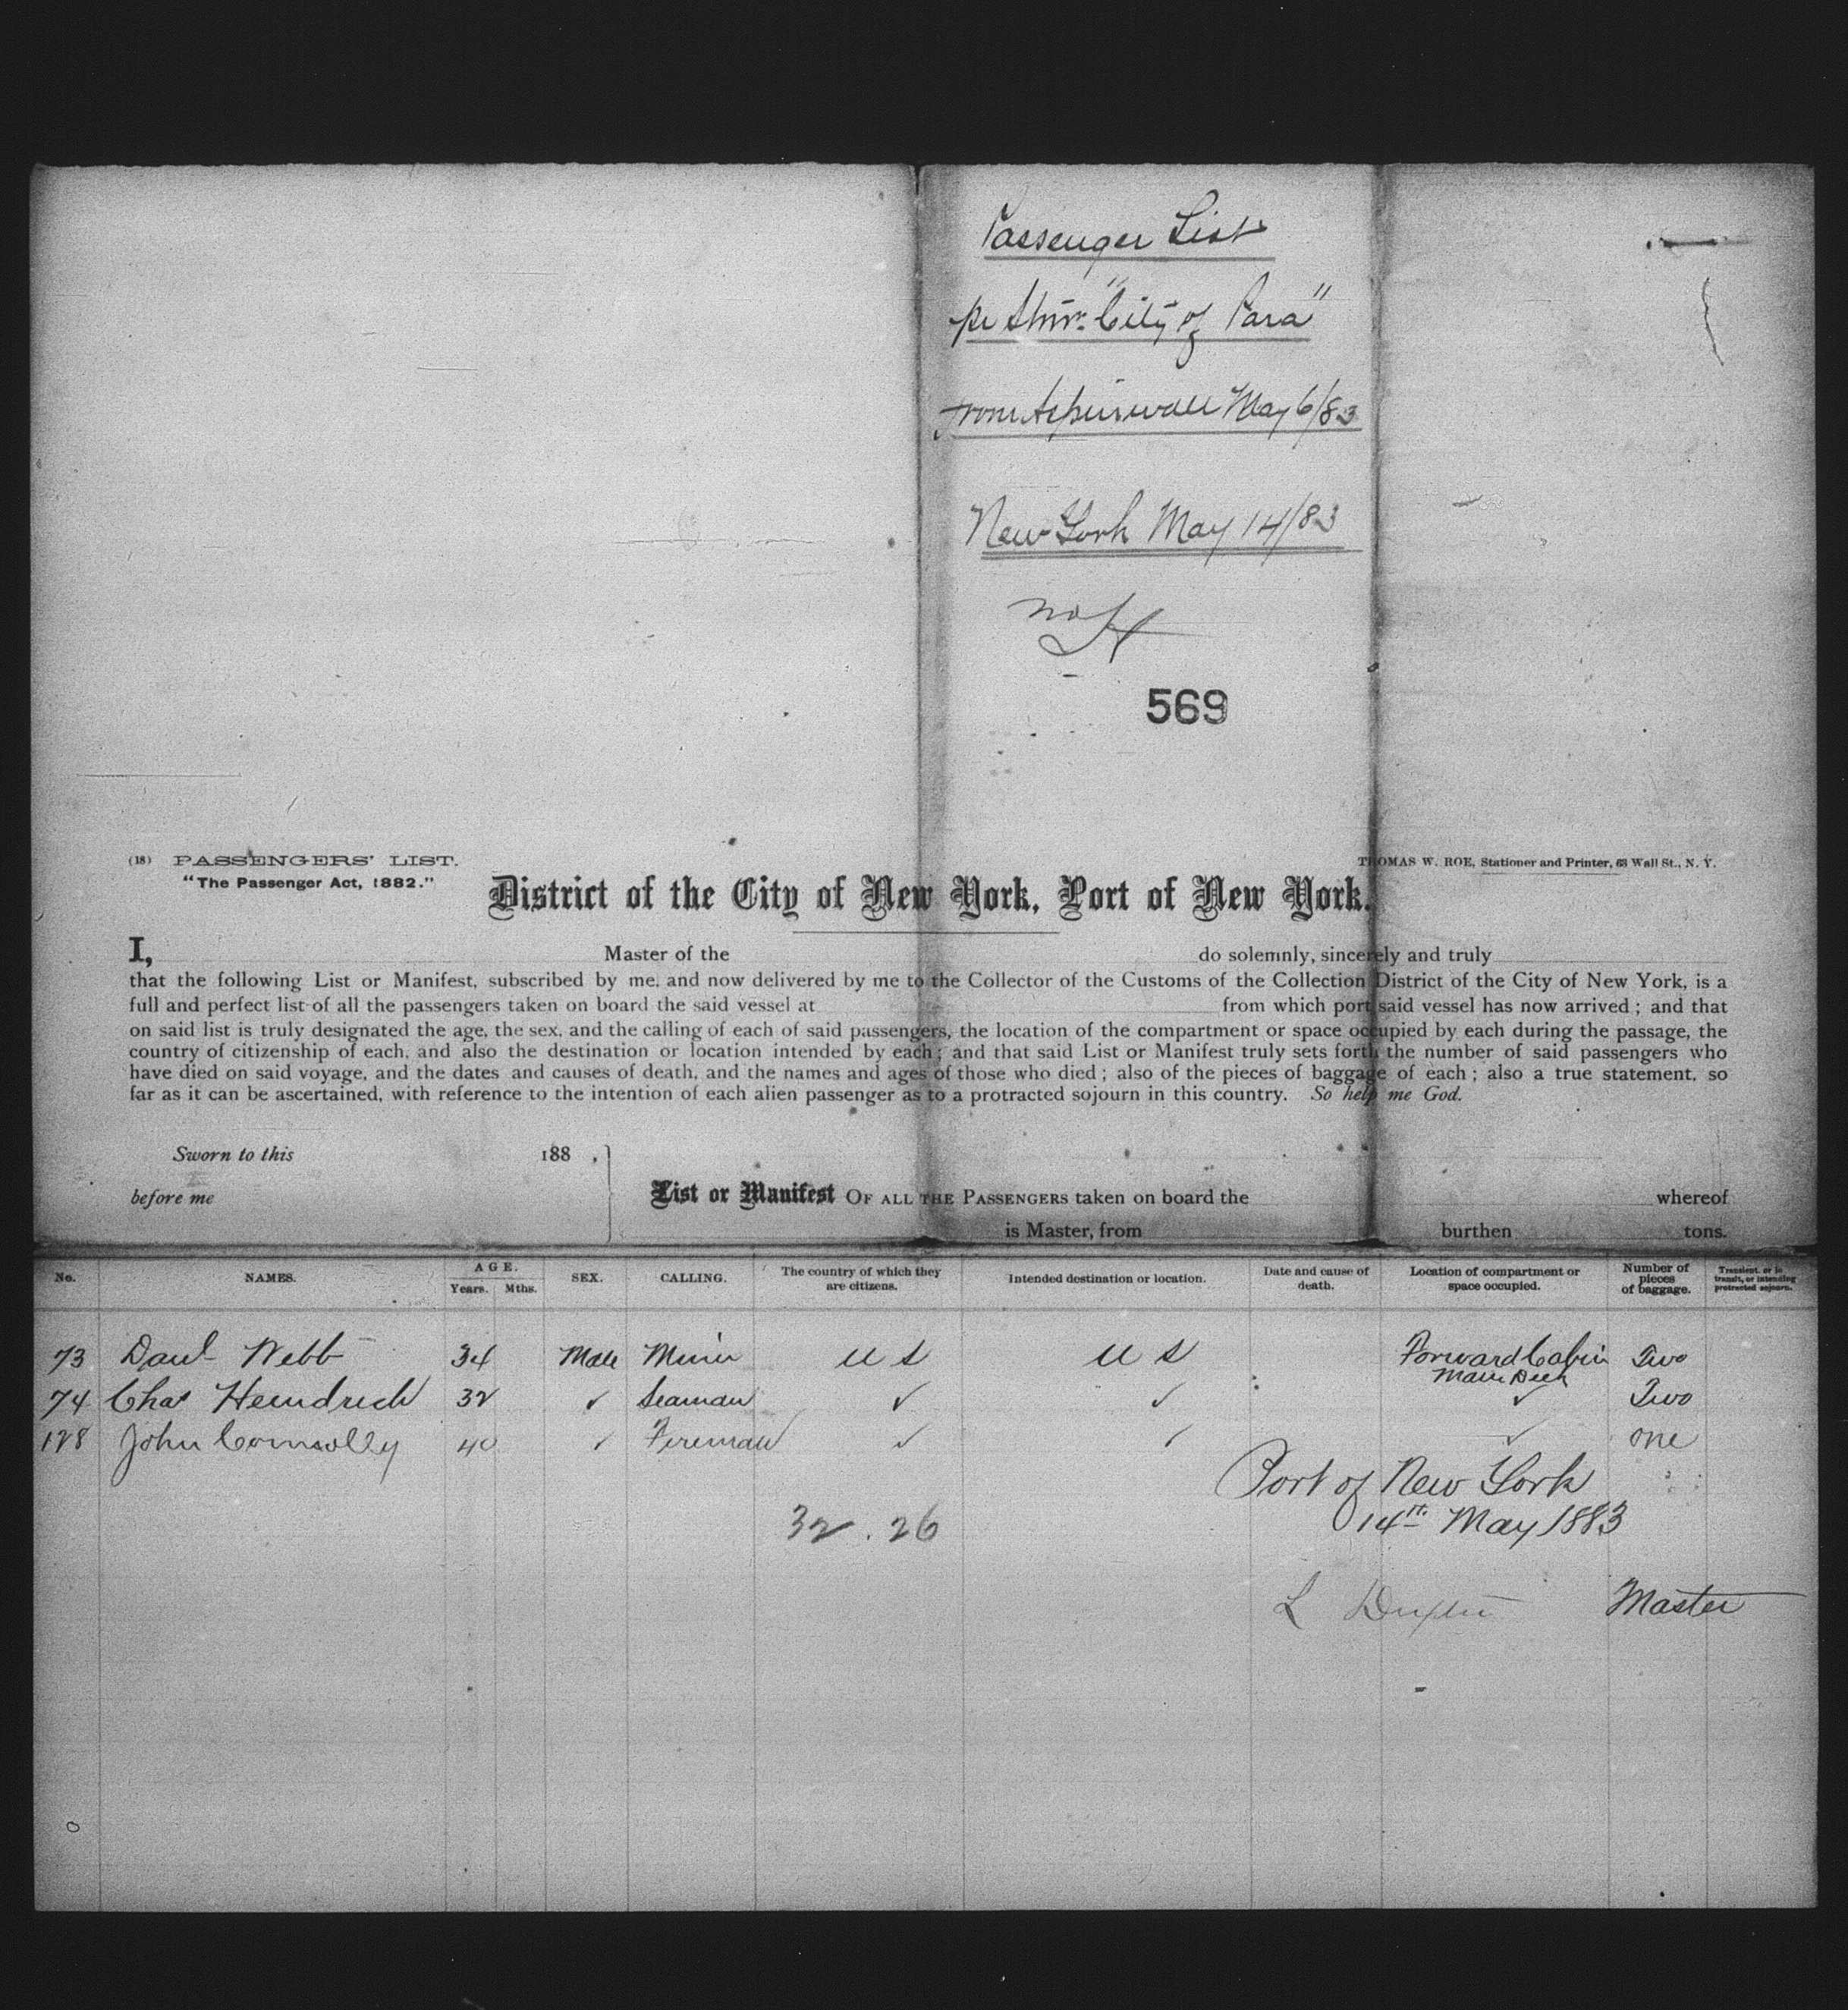 Passenger List
pr Stmr. "City of Para"
from Aspinwall May 6/83
New York May 14/83
569
(18) PASSENGERS' LIST.
"The Passenger Act, 1882."
THOMAS W. ROE, Stationer and Printer, 63 Wall St., N. Y.
District of the City of New York, Port of New York.
I, Master of the do solemnly, sincerely and truly
that the following List or Manifest, subscribed by me, and now delivered by me to the Collector of the Customs of the Collection District of the City of New York, is a
full and perfect list of all the passengers taken on board the said vessel at from which port said vessel has now arrived ; and that
on said list is truly designated the age, the sex, and the calling of each of said passengers, the location of the compartment or space occupied by each during the passage, the
country of citizenship of each, and also the destination or location intended by each ; and that said List or Manifest truly sets forth the number of said passengers who
have died on said voyage, and the dates and causes of death, and the names and ages of those who died ; also of the pieces of baggage of each ; also a true statement, so
far as it can be ascertained, with reference to the intention of each alien passenger as to a protracted sojourn in this country. So help me God.
Sworn to this 188 ,
before me
List or Manifest OF ALL THE PASSENGERS taken on board the whereof
is Master, from burthen tons.
No. NAMES. AGE. Years. Mths. SEX. CALLING. The country of which they are citizens. Intended destination or location. Date and cause of death. Location of compartment or space occupied. Number of pieces of baggage. Transient, or in transit, or intending protracted sojourn.
73 Danl Webb 34 Male Miner U S U S Forward Cabin Main Deck Two
74 Chas Heindrich 32 ✓ Seaman ✓ ✓ ✓ Two
128 John Connolly 40 ✓ Fireman ✓ ✓ ✓ one
Port of New York
32 . 26
14th May 1883
L Master